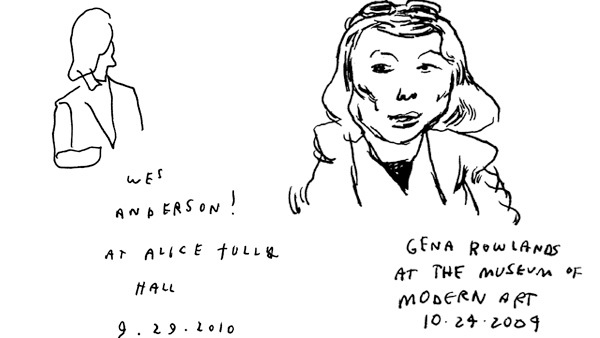 WES
ANDERSON!
AT ALICE TULLY
HALL
9.29.2010
GENA ROWLANDS
AT THE MUSEUM OF
MODERN ART
10.24.2009